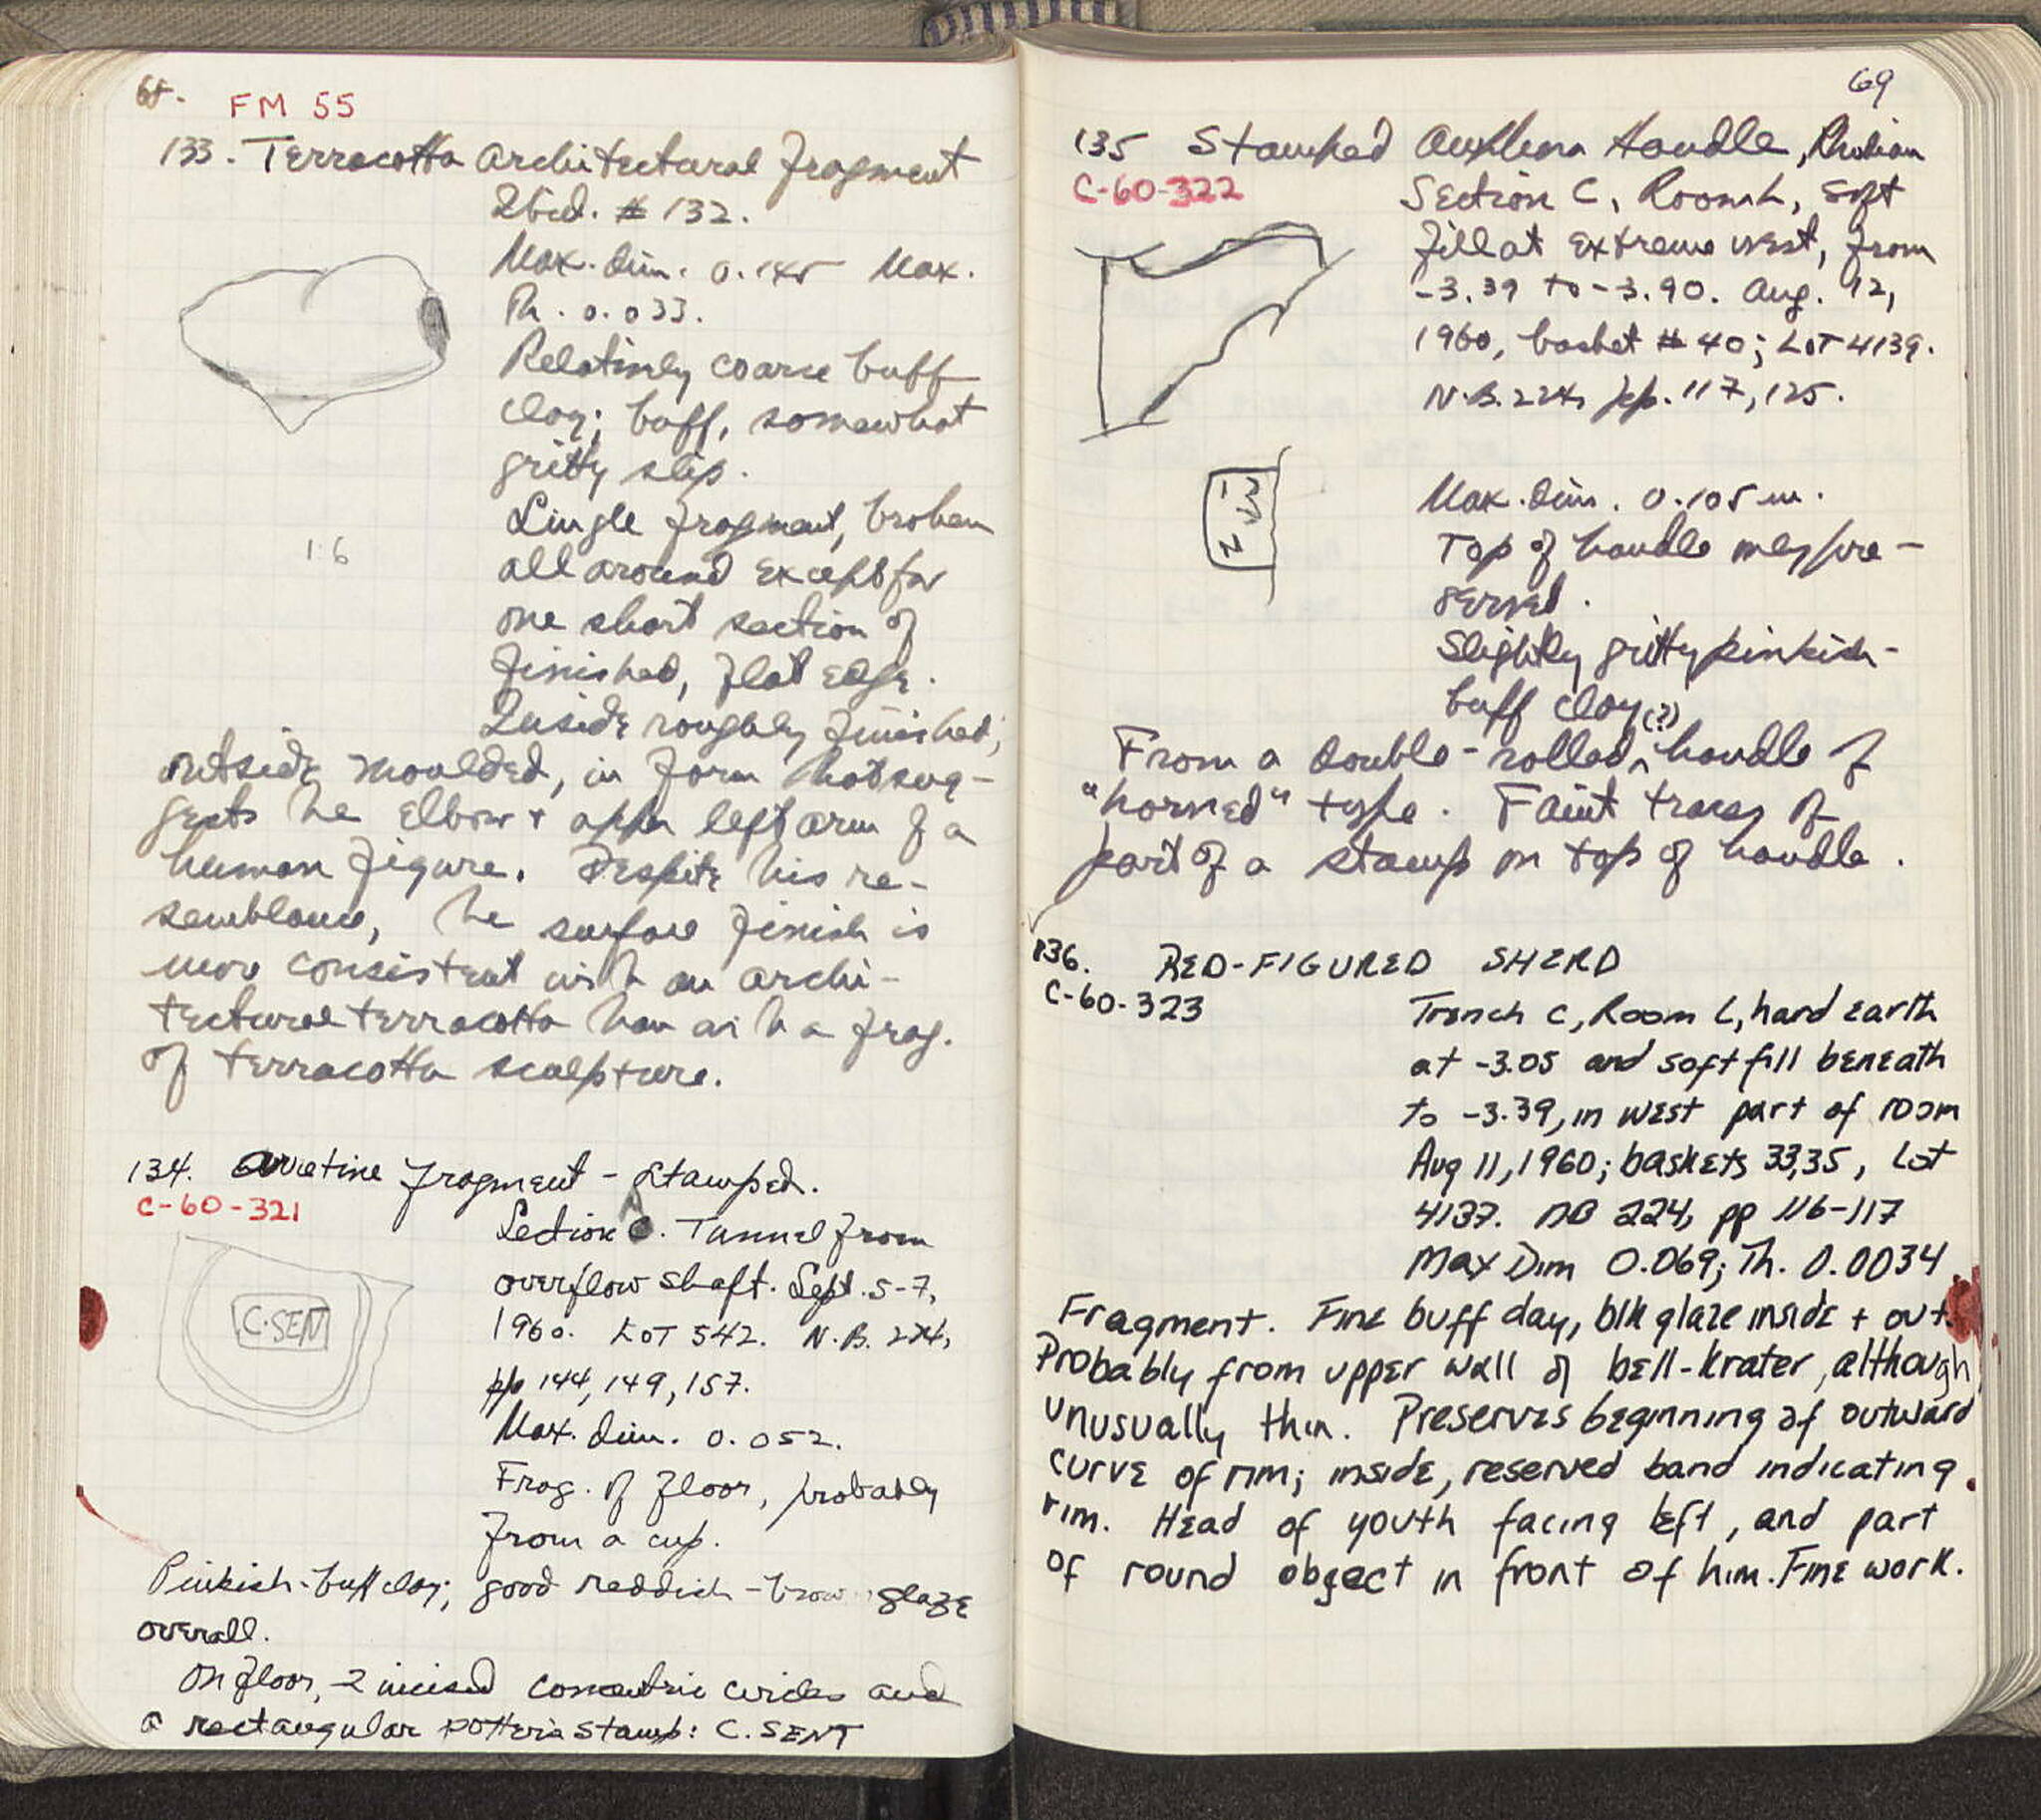 68.
FM 55
133. Terracotta Architectural fragment
Ibid. # 132.
Max. dim. 0.145 Max.
Th. 0.033.
Relatively coarse buff
clay; buff, somewhat
gritty slip.
Single fragment, broken
all around except for
one short section of
finished, flat edge.
Inside roughly finished;
1:6
outside moulded, in form that sug-
gests the elbow + upper left arm of a
human figure. Despite this re-
semblance, the surface finish is
more consistent with an archi-
tectural terracotta than with a frag.
of terracotta sculpture.
134. Arretine fragment - Stamped.
C-60-321
Section A. Tunnel from
overflow shaft. Sept. 5-7,
1960. LOT 542. N.B. 224,
pp 144, 149, 157.
Max. dim. 0.052.
Frag. of floor, probably
from a cup.
C·SENT
Pinkish-buff clay; good reddish-brown glaze
overall.
On floor, 2 incised concentric circles and
a rectangular potter's stamp: C. SENT
69
135 Stamped Amphora Handle, Rhodian
C-60-322
Section C, Room L, soft
fill at extreme west, from
-3.39 to -3.90. Aug. 12,
1960, basket # 40; LOT 4139.
N.B. 224, pp. 117, 125.
Max. dim. 0.105 m.
Top of handle only pre-
served.
Slightly gritty pinkish-
buff clay
From a double-rolled (?) handle of
"horned" type. Faint traces of
part of a stamp on top of handle.
136. RED-FIGURED SHERD
C-60-323
Trench C, Room L, hard earth
at -3.05 and soft fill beneath
to -3.39, in west part of room
Aug 11, 1960; baskets 33,35, Lot
4137. NB 224, pp 116-117
Max Dim 0.069; Th. 0.0034
Fragment. Fine buff clay, blk glaze inside + out.
Probably from upper wall of bell-krater, although
unusually thin. Preserves beginning of outward
curve of rim; inside, reserved band indicating
rim. Head of youth facing left, and part
of round object in front of him. Fine work.